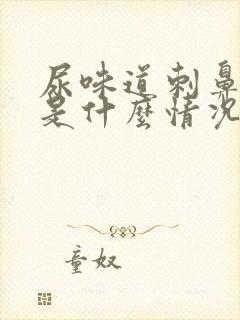 尿味道刺鼻
是什麼情况
童奴